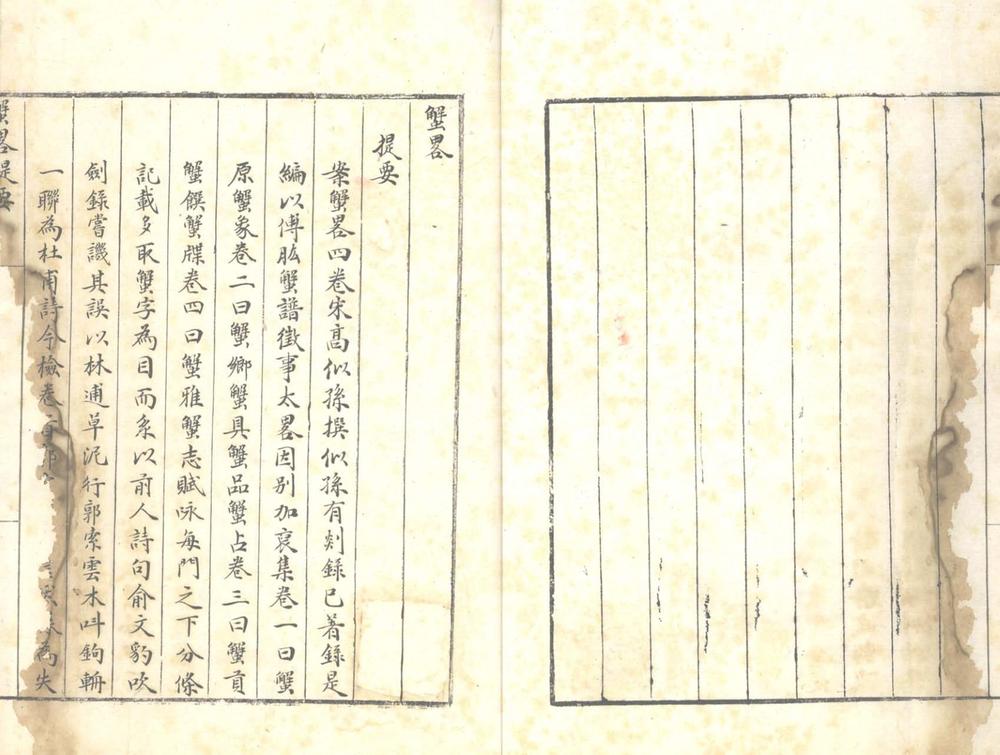 蟹畧
提要
案蟹畧四卷宋高似孫撰似孫有剡錄已著錄是
編以傅肱蟹譜徵事太畧因别加裒集卷一曰蟹
原蟹象卷二曰蟹鄉蟹具蟹品蟹占卷三曰蟹貢
蟹饌蟹牒卷四曰蟹雅蟹志賦咏每門之下分條
記載多取蟹字為目而系以前人詩句俞文豹吹
劍錄嘗譏其誤以林逋草泥行郭索雲木呌鉤輈
一聯為杜甫詩今檢卷首郭 為失
蟹畧提要